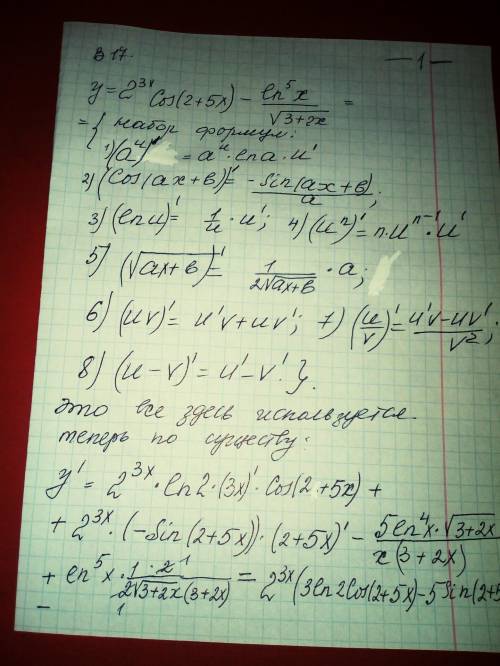 В 17.
— 1 —
y = 2^{3x} cos(2+5x) − \frac{ln^5 x}{\sqrt{3+2x}} =
= { набор формул:
1) (a^u)' = a^u · ln a · u'
2) (cos(ax+в))' = \frac{-sin(ax+в)}{a};
3) (ln u)' = \frac{1}{u} · u'; 4) (u^n)' = n·u^{n-1}·u'
5) (\sqrt{ax+в})' = \frac{1}{2\sqrt{ax+в}} · a;
6) (uv)' = u'v + uv'; 7) (\frac{u}{v})' = \frac{u'v − uv'}{v^2};
8) (u − v)' = u' − v'. }.
Это все здесь используется.
теперь по существу:
y' = 2^{3x} · ln2 · (3x)' · cos(2+5x) +
+ 2^{3x} · (−sin(2+5x)) · (2+5x)' − \frac{5ln^4 x · \sqrt{3+2x}}{x(3+2x)}
+ ln^5 x · \frac{1·2}{2\sqrt{3+2x}(3+2x)} = 2^{3x}(3ln2cos(2+5x) − 5sin(2+5